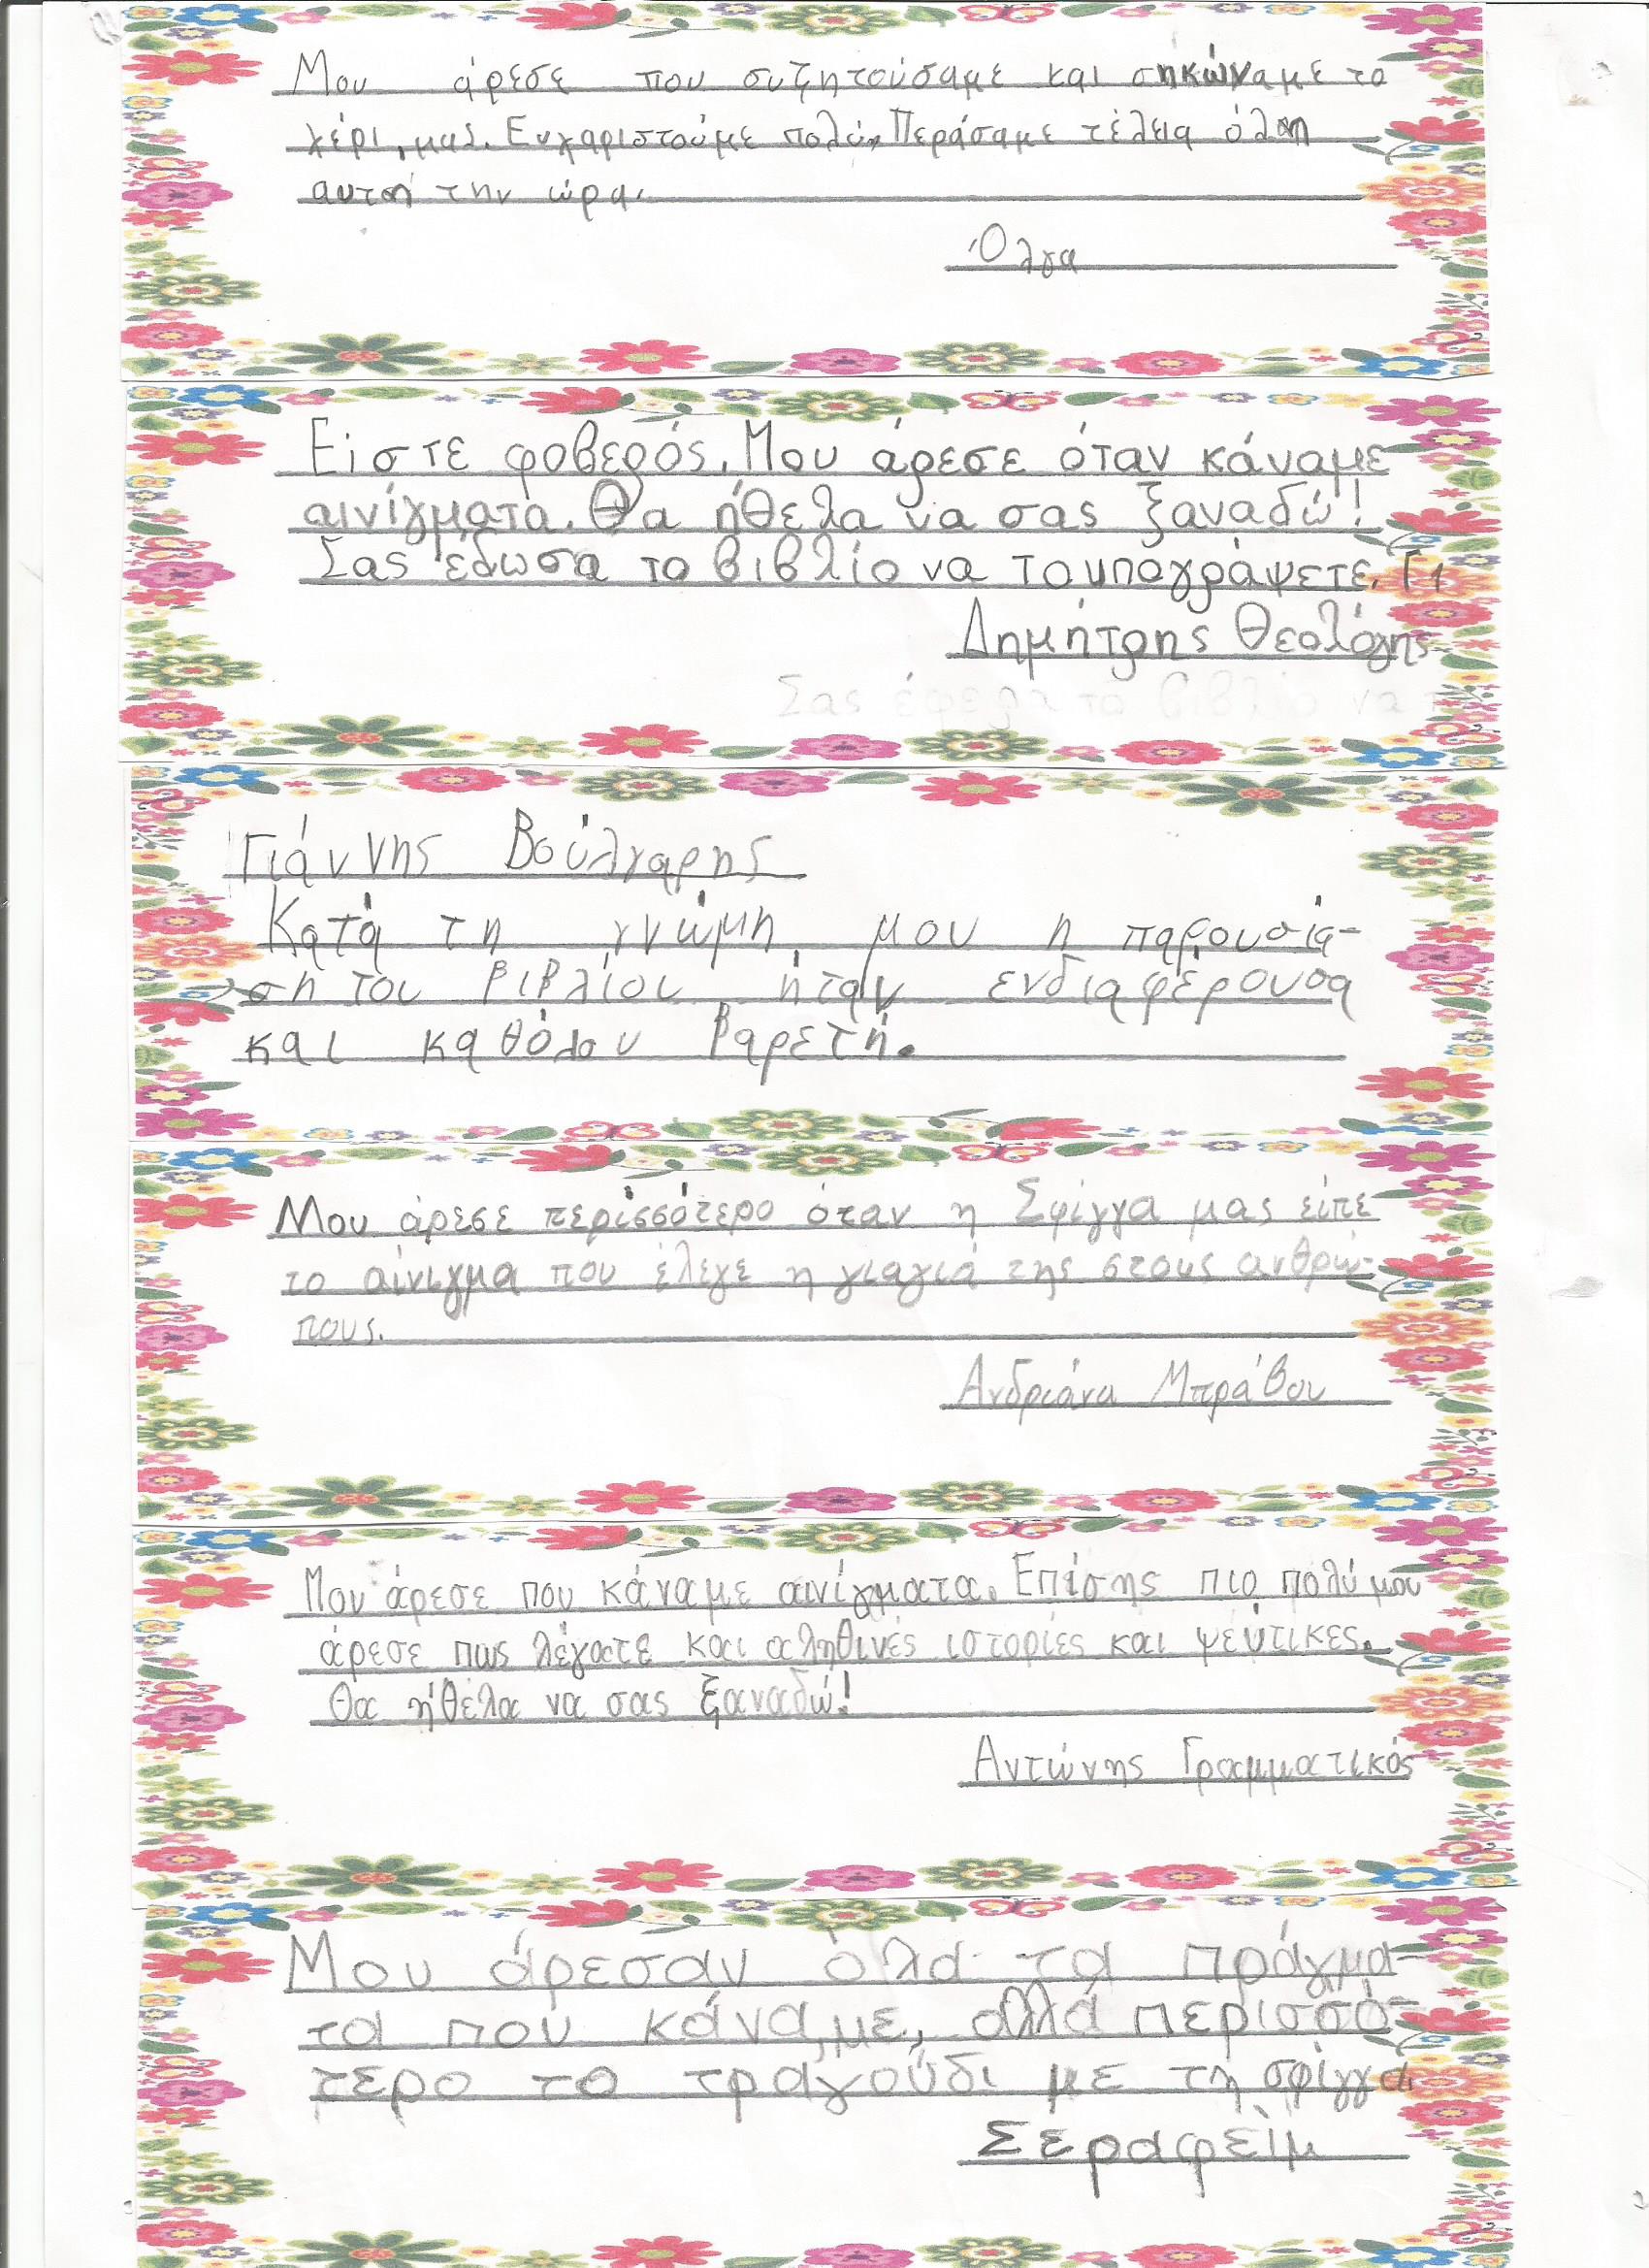 Μου άρεσε που συζητούσαμε και σηκώναμε το
χέρι, μας. Ευχαριστούμε πολύ, Περάσαμε τέλεια όλη
αυτή την ώρα.
Όλγα
Είστε φοβερός. Μου άρεσε όταν κάναμε
αινίγματα. Θα ήθελα να σας ξαναδώ!
Σας έδωσα το βιβλίο να το υπογράψετε. Γ1
Δημήτρης Θεολόγης
Σας έφερα το βιβλίο να τ
Γιάννης Βούλγαρης
Κατά τη γνώμη μου η παρουσία-
ση του βιβλίου ήταν ενδιαφέρουσα
και καθόλου βαρετή.
Μου άρεσε περισσότερο όταν η Σφίγγα μας είπε
το αίνιγμα που έλεγε η γιαγιά της στους ανθρώ-
πους.
Ανδριάνα Μπράβου
Μου άρεσε που κάναμε αινίγματα. Επίσης πιο πολύ μου
άρεσε πως λέγατε και αληθινές ιστορίες και ψεύτικες.
Θα ήθελα να σας ξαναδώ!
Αντώνης Γραμματικός
Μου άρεσαν όλα τα πράγμα-
τα που κάναμε, αλλά περισσό-
τερο το τραγούδι με τη σφίγγα
Σεραφείμ